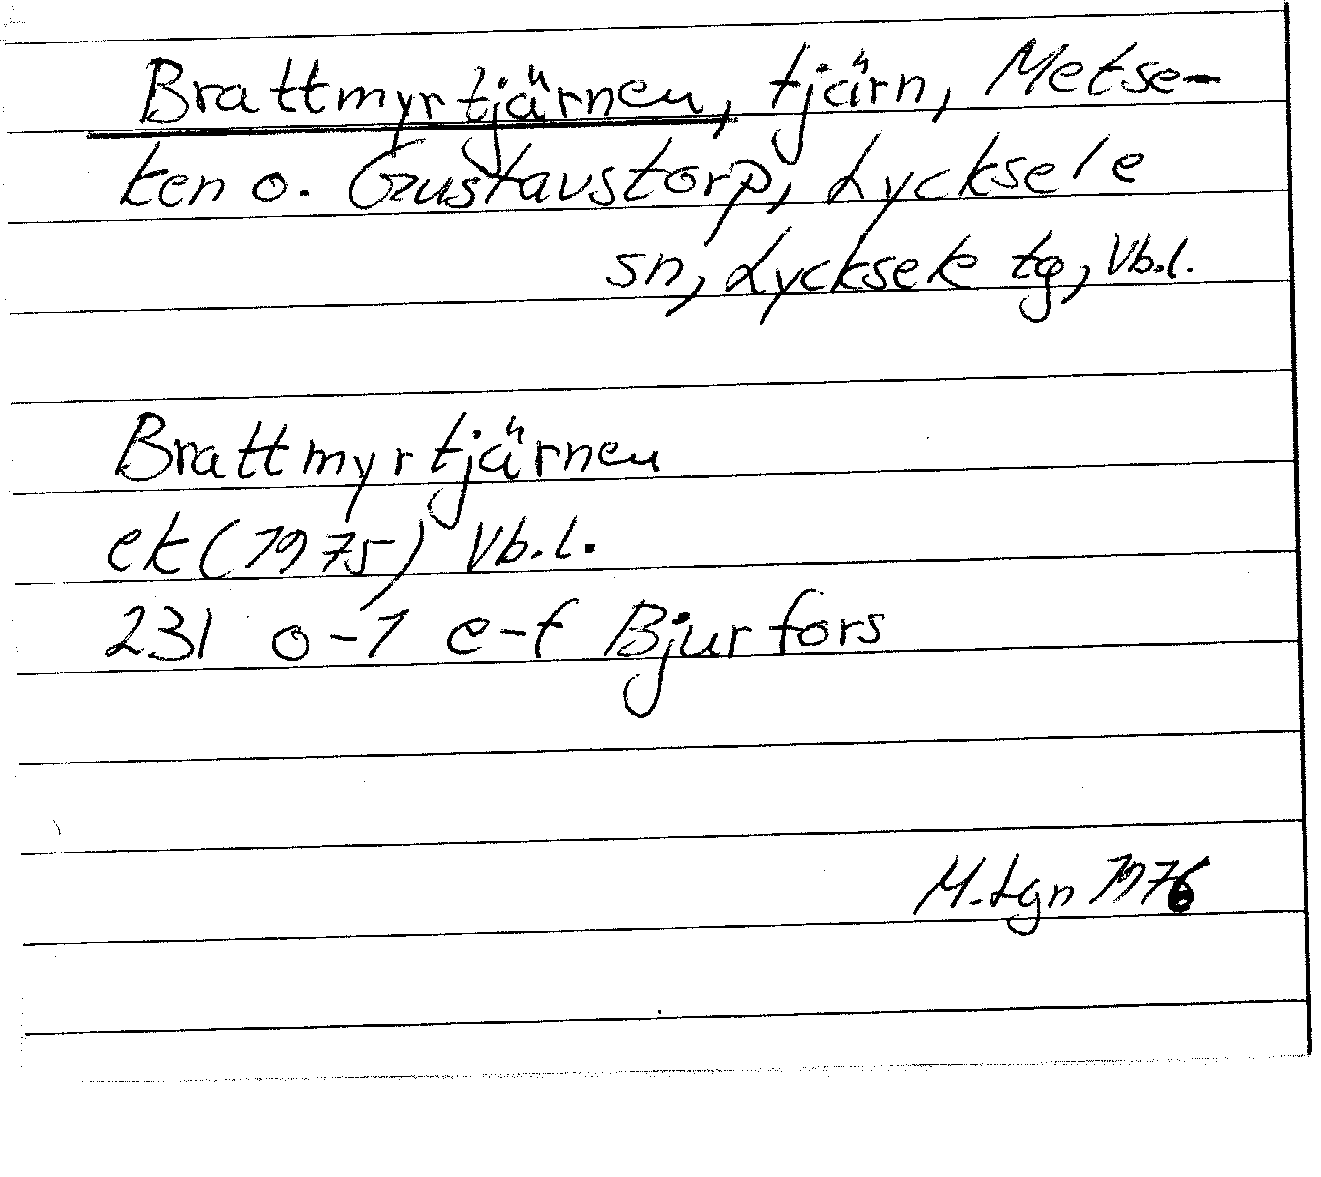 Brattmyrtjärnen, tjärn, Metse-
ken o. Gustavstorp, Lycksele
sn, Lycksele tg, Vb.l.
Brattmyrtjärnen
ek (1975) Vb.l.
231 0-1 e-f Bjurfors
M-tgn 1976